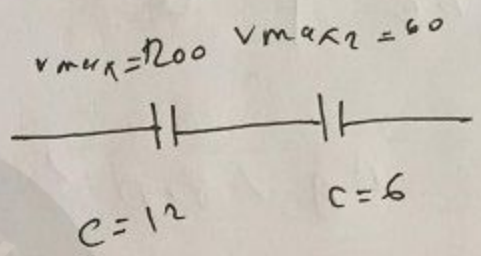 vmax=1200 vmax2=60
C=12 C=6